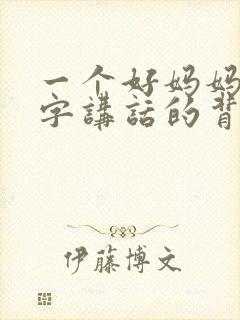 一个好妈妈
字講話的背
伊藤博文